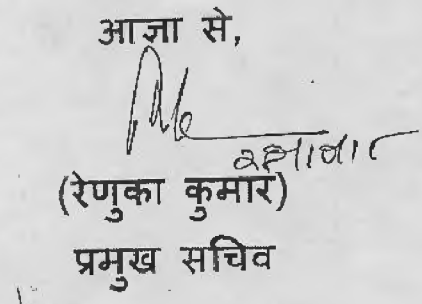 आज्ञा से,
(रेणुका कुमार)
प्रमुख सचिव